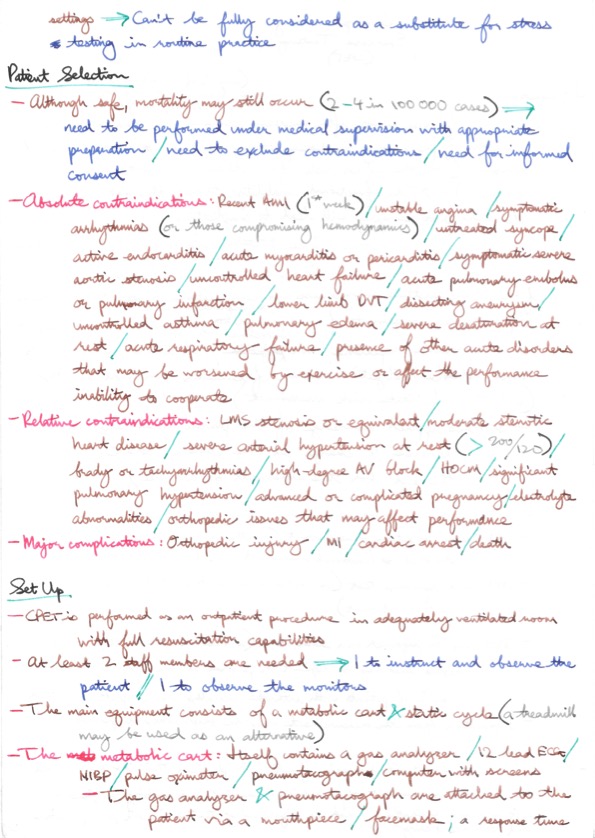 settings → Can't be fully considered as a substitute for stress
testing in routine practice
Patient Selection
- Although safe, mortality may still occur (2-4 in 100 000 cases) →
need to be performed under medical supervision with appropriate
preparation / need to exclude contraindications / need for informed
consent
- Absolute contraindications: Recent AMI (1st week) / unstable angina / symptomatic
arrhythmias (or those compromising hemodynamics) / untreated syncope /
active endocarditis / acute myocarditis or pericarditis / symptomatic severe
aortic stenosis / uncontrolled heart failure / acute pulmonary embolus
or pulmonary infarction / lower limb DVT / dissecting aneurysm /
uncontrolled asthma / pulmonary edema / severe desaturation at
rest / acute respiratory failure / presence of other acute disorders
that may be worsened by exercise or affect the performance
inability to cooperate
- Relative contraindications: LMS stenosis or equivalent / moderate stenotic
heart disease / severe arterial hypertension at rest (> 200/120) /
brady or tachyarrhythmias / high-degree AV block / HOCM / significant
pulmonary hypertension / advanced or complicated pregnancy / electrolyte
abnormalities / orthopedic issues that may affect performance
- Major complications: Orthopedic injury / MI / cardiac arrest / death
Set Up
- CPET is performed as an outpatient procedure in adequately ventilated room
with full resuscitation capabilities
- At least 2 staff members are needed → 1 to instruct and observe the
patient // 1 to observe the monitors
- The main equipment consists of a metabolic cart & static cycle (a treadmill
may be used as an alternative)
- The metabolic cart: Itself contains a gas analyzer / 12 lead ECG /
NIBP / pulse oximeter / pneumotacograph / computer with screens
- The gas analyzer & pneumotacograph are attached to the
patient via a mouthpiece / facemask; a response time